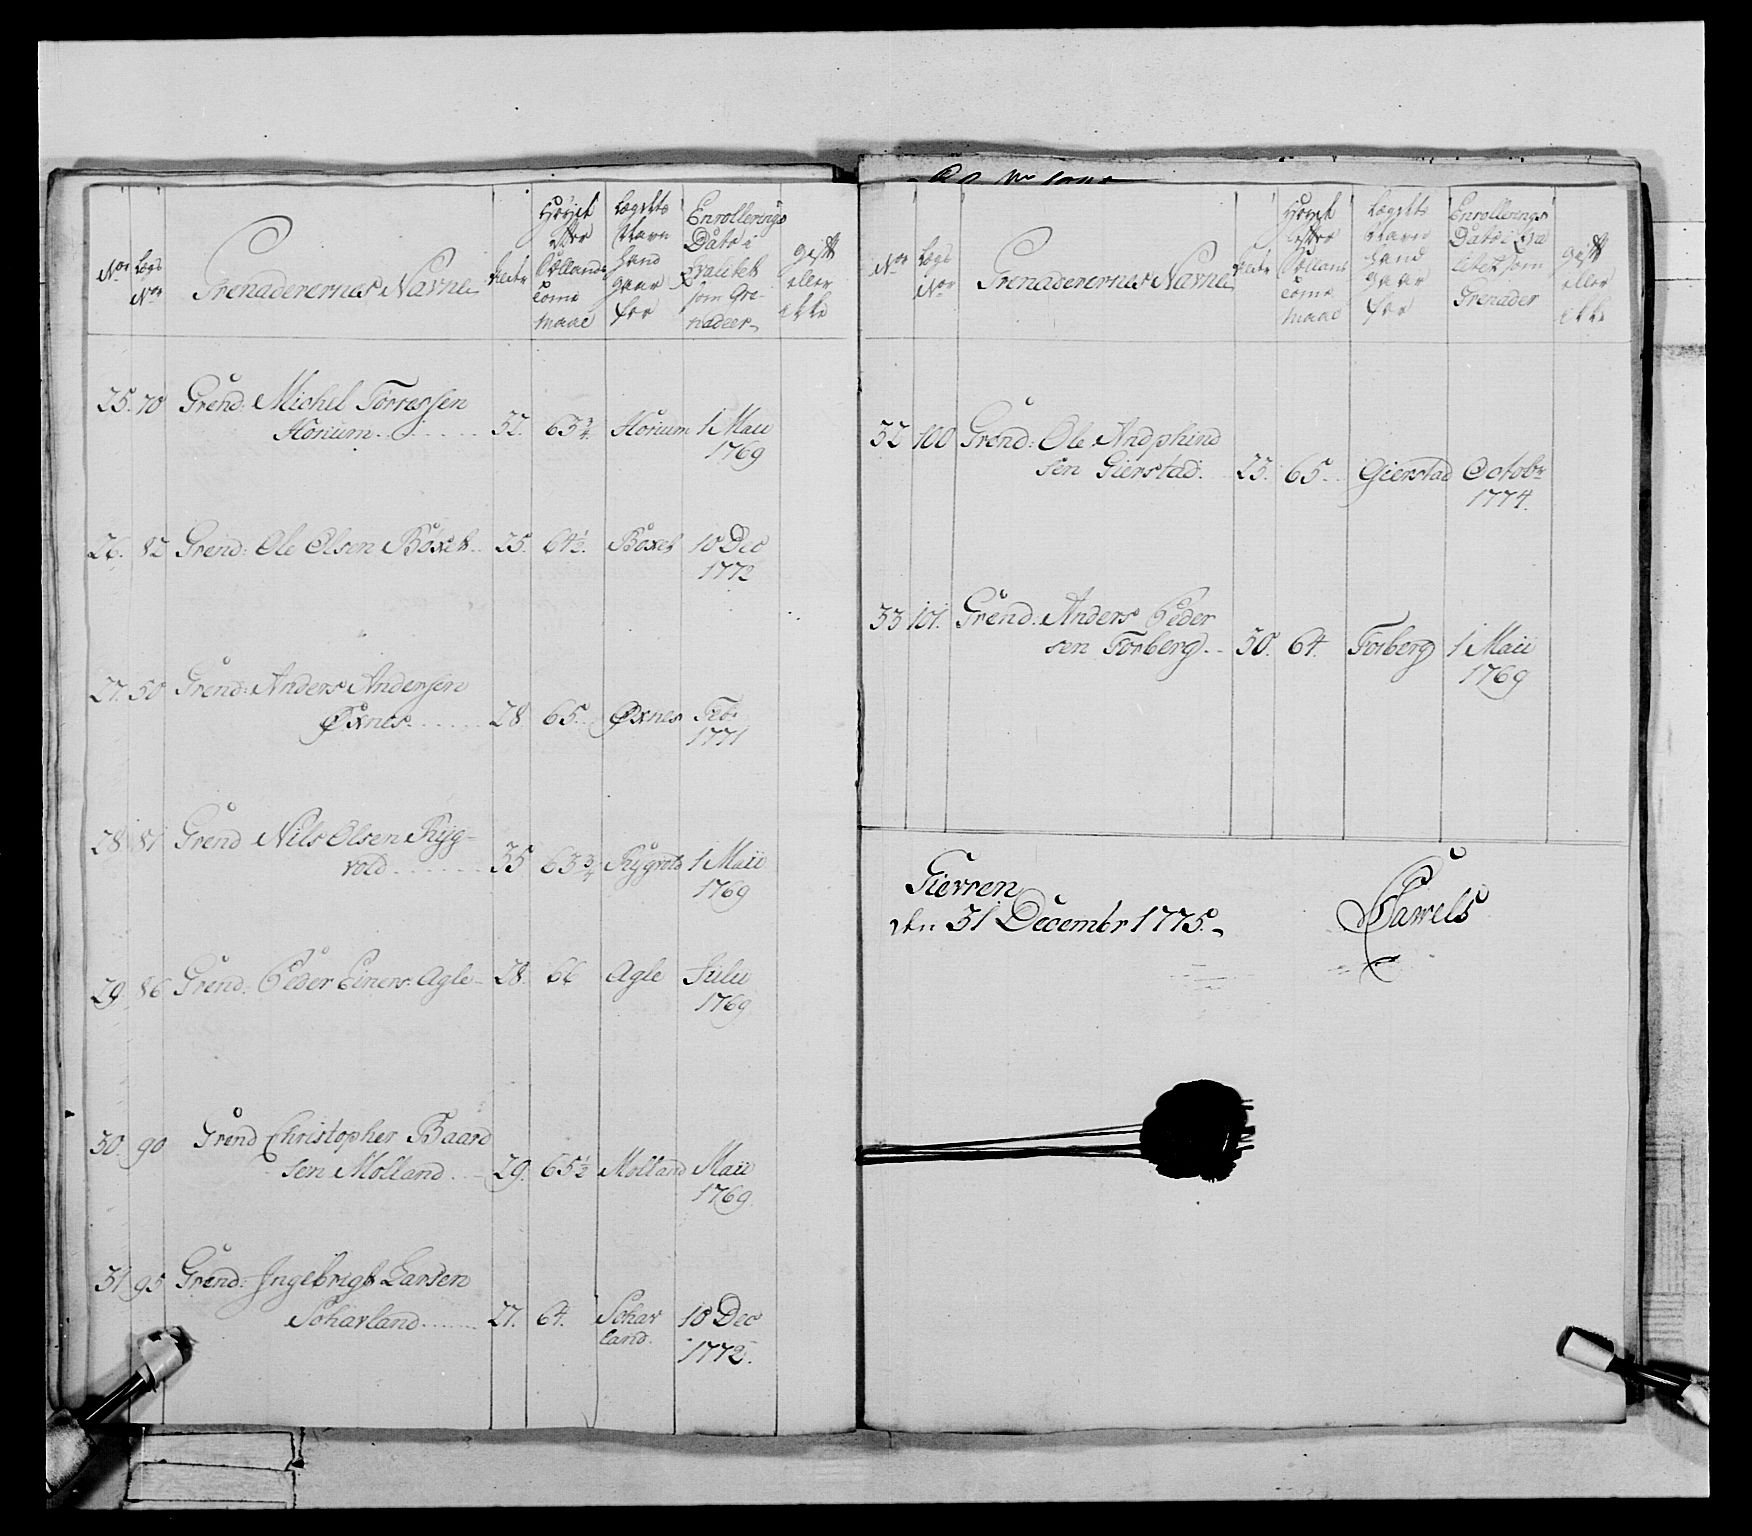 No
Lægs
No
Grenaderernes Navne
Alder
Høyet
efter
Sællands
Tome
maae
Lægetts
Navn
hand
gaar
for
Enrollerings
Dato i
Qvalitet
som Gre-
nadeer
gift
eller
ikke
25. 70 Grend: Michel Torressen
Horium 32. 63 3/4. Horium 1 Maii
1769
26. 82 Grend: Ole Olsen Böxet 25. 64 1/2. Böxet 10 Dec
1772
27. 50 Grend: Anders Andersen
Øxnes 28. 65. Øxnes Feb:
1771
28. 81 Grend Nils Olsen Ryg-
vold 35 63 3/4 Rygvold 1 Maii
1769
29 86 Grend: Peder Einers: Agle 28. 66 Agle Julii
1769
30. 90 Grend Christopher Baard
sen Molland 29. 65 1/2 Molland Maii
1769
31 95 Grend: Ingebrigt Larsen
Soharland 27. 64. Sohar 10 Dec
land. 1772.
No
Lægs
No
Grenaderernes Navne
Alder
Høyet
efter
Sællans
Tome
maae
Lægetts
Navn
hand
gaar
for
Enrollerings
Dato i Qva
litet som
Grenader
gift
eller
ikke
32 100 Grend: Ole Andphind
sen Gierstad. 23. 65. Gierstad Octobr
1774.
33 101. Grend. Anders Peder
sen Forberg. 30. 64. Forberg 1 Maii
1769
Gierren
den 31 Decembr 1775.
Pawels